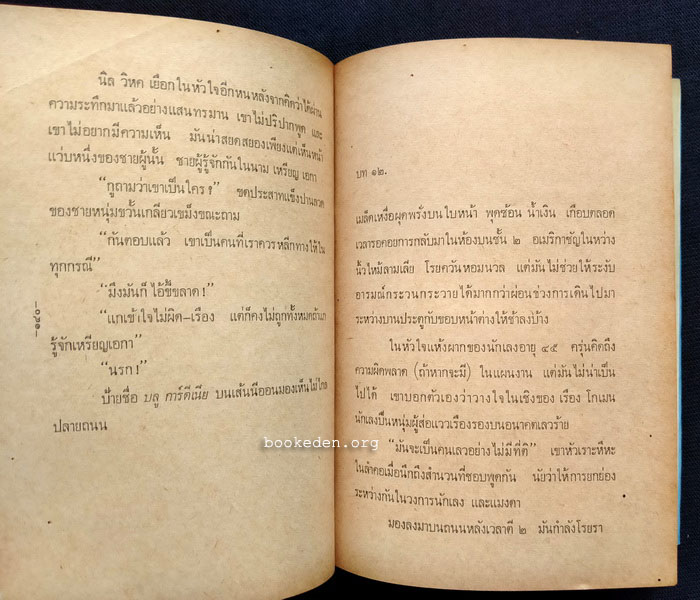 นิล วิหค เยือกในหัวใจอีกหนหลังจากคิดว่าได้ผ่าน
ความระทึกมาแล้วอย่างแสนทรมาน เขาไม่ปริปากพูด และ
เขาไม่อยากมีความเห็น มันน่าสยดสยองเพียงแต่เห็นหน้า
แว่บหนึ่งของชายผู้นั้น ชายผู้รู้จักกันในนาม เหรียญ เอกา
“กูถามว่าเขาเป็นใคร ?” ขดประสาทแข็งปานลวด
ของชายหนุ่มขวั้นเกลียวเขม็งขณะถาม
“กันตอบแล้ว เขาเป็นคนที่เราควรหลีกทางให้ใน
ทุกกรณี”
“มึงมันก็ ไอ้ขี้ขลาด !”
“แกเข้าใจไม่ผิด–เรือง แต่ก็คงไม่ถูกทั้งหมดถ้าแก
รู้จักเหรียญเอกา”
“นรก !”
ป้ายชื่อ บลู การ์ดีเนีย บนเส้นนีออนมองเห็นไม่ไกล
ปลายถนน
–๑๔๐–
บท ๑๒.
เม็ดเหงื่อผุดพรั่งบนใบหน้า พุดซ้อน น้ำเงิน เกือบตลอด
เวลารอคอยการกลับมาในห้องบนชั้น ๒ อเมริกาชัญในหว่าง
นิ้วไหม้ลามเลีย โรยควันหอมนวล แต่มันไม่ช่วยให้ระงับ
อารมณ์กระวนกระวายได้มากกว่าผ่อนช่วงการเดินไปมา
ระหว่างบานประตูกับขอบหน้าต่างให้ช้าลงบ้าง
ในหัวใจแห้งผากของนักเลงอายุ ๔๕ ครุ่นคิดถึง
ความผิดพลาด (ถ้าหากจะมี) ในแผนงาน แต่มันไม่น่าเป็น
ไปได้ เขาบอกตัวเองว่าวางใจในเชิงของ เรือง โกเมน
นักเลงปืนหนุ่มผู้ส่อแววเรืองรองบนอนาคตเลวร้าย
“มันจะเป็นคนเลวอย่างไม่มีที่ติ” เขาหัวเราะหึหะ
ในลำคอเมื่อนึกถึงสำนวนที่ชอบพูดกัน นัยว่าให้การยกย่อง
ระหว่างกันในวงการนักเลง และแมงดา
มองลงมาบนถนนหลังเวลาตี ๒ มันกำลังโรยรา
bookeden.org